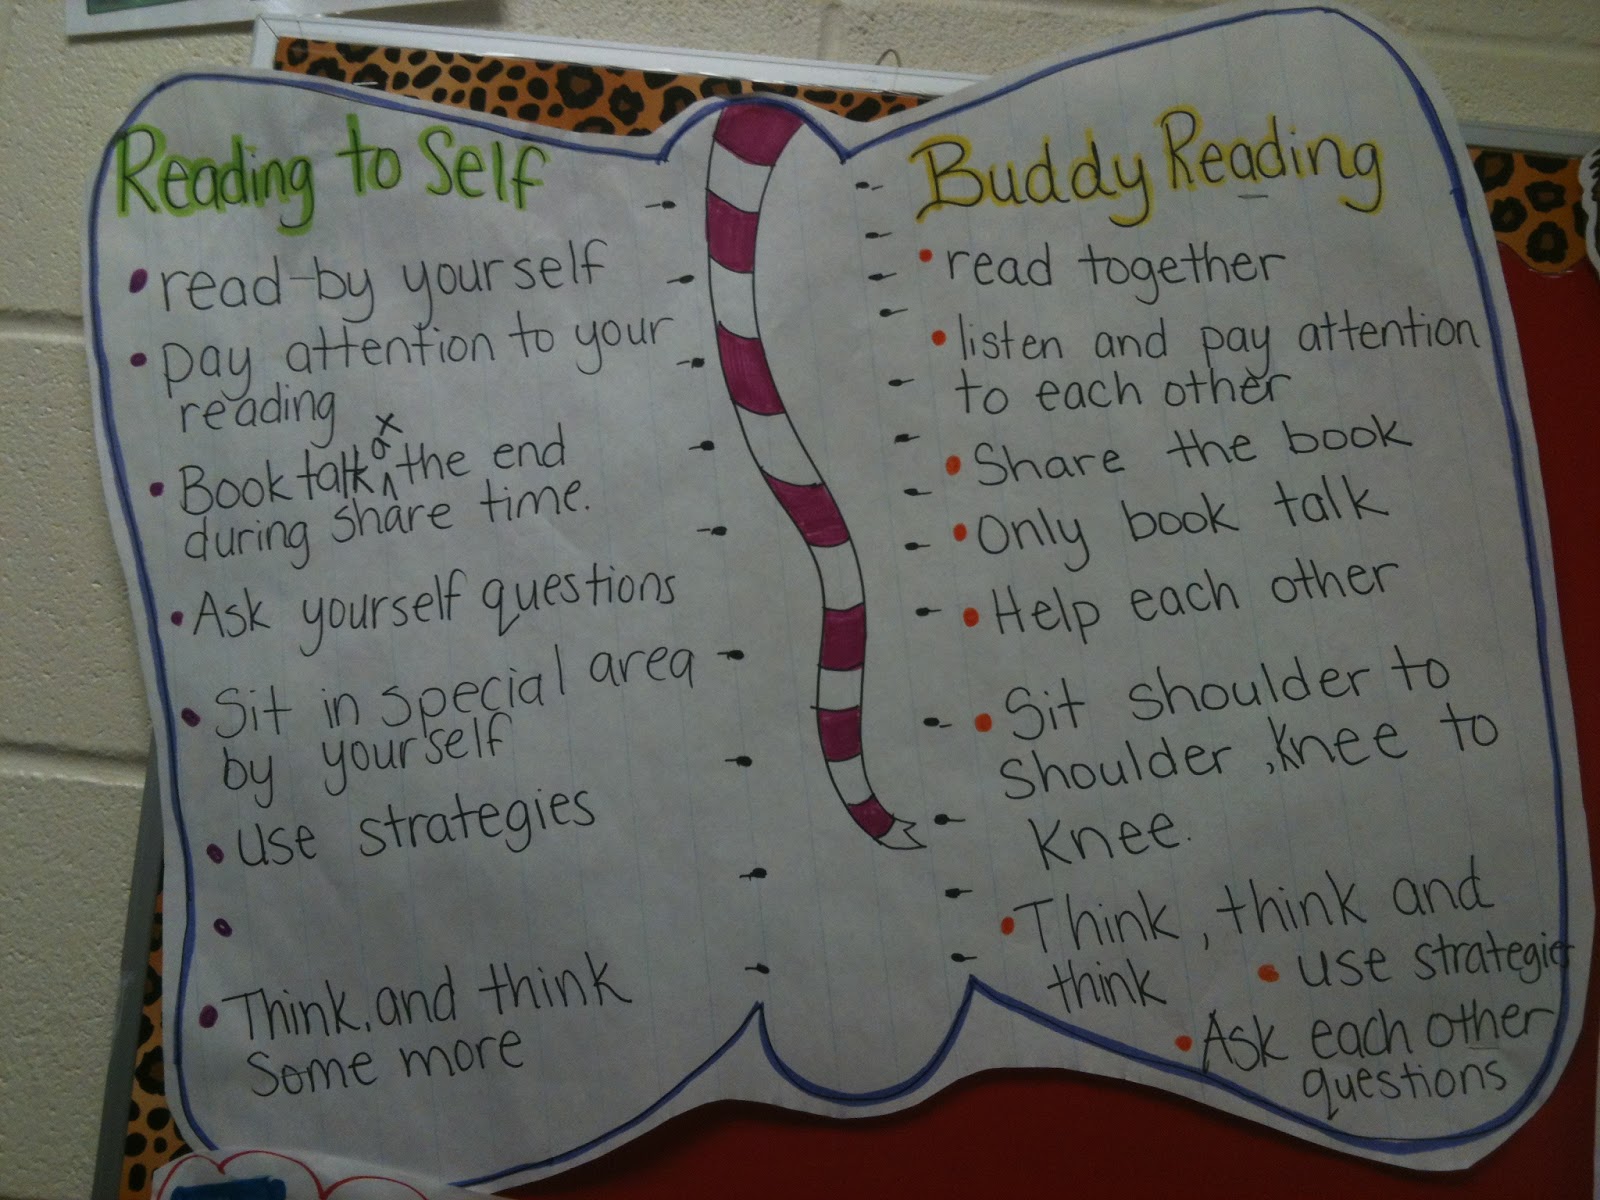 Reading to Self
• read-by yourself
• pay attention to your
reading
• Book talk at the end
during share time.
• Ask yourself questions
• Sit in special area
by yourself
• use strategies
•
• Think, and think
Some more
Buddy Reading
• read together
• listen and pay attention
to each other
• Share the book
• Only book talk
• Help each other
• Sit shoulder to
shoulder, knee to
knee.
• Think, think and
think
• use strategies
• Ask each other
questions